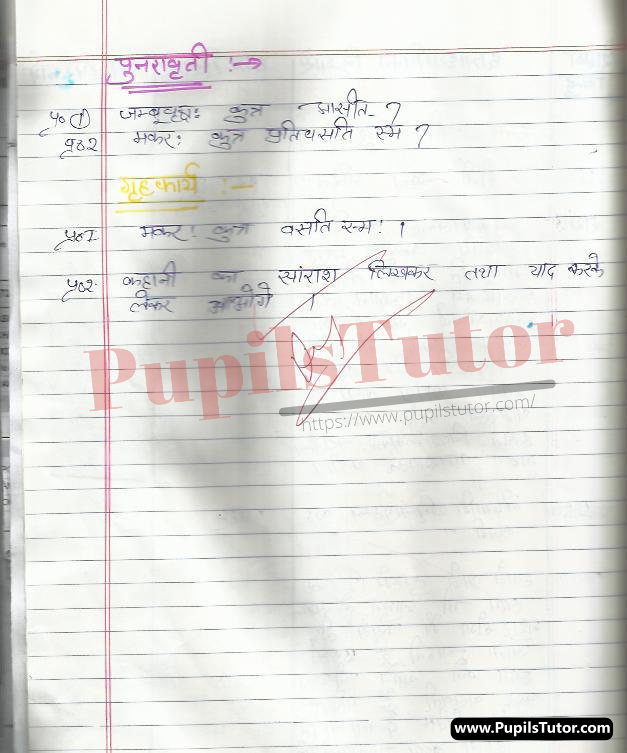 पुनरावृती :→
प्र० 1 जम्बूवृक्षः कुत्र आसीत् ?
प्र०2 मकरः कुत्र प्रतिवसति स्म ?
गृहकार्य :-
प्र०1- मकरः कुत्र वसति स्मः ।
प्र०2- कहानी का सांराश लिखकर तथा याद करके
लेकर आओगे ।
PupilsTutor
https://www.pupilstutor.com/
www.PupilsTutor.com